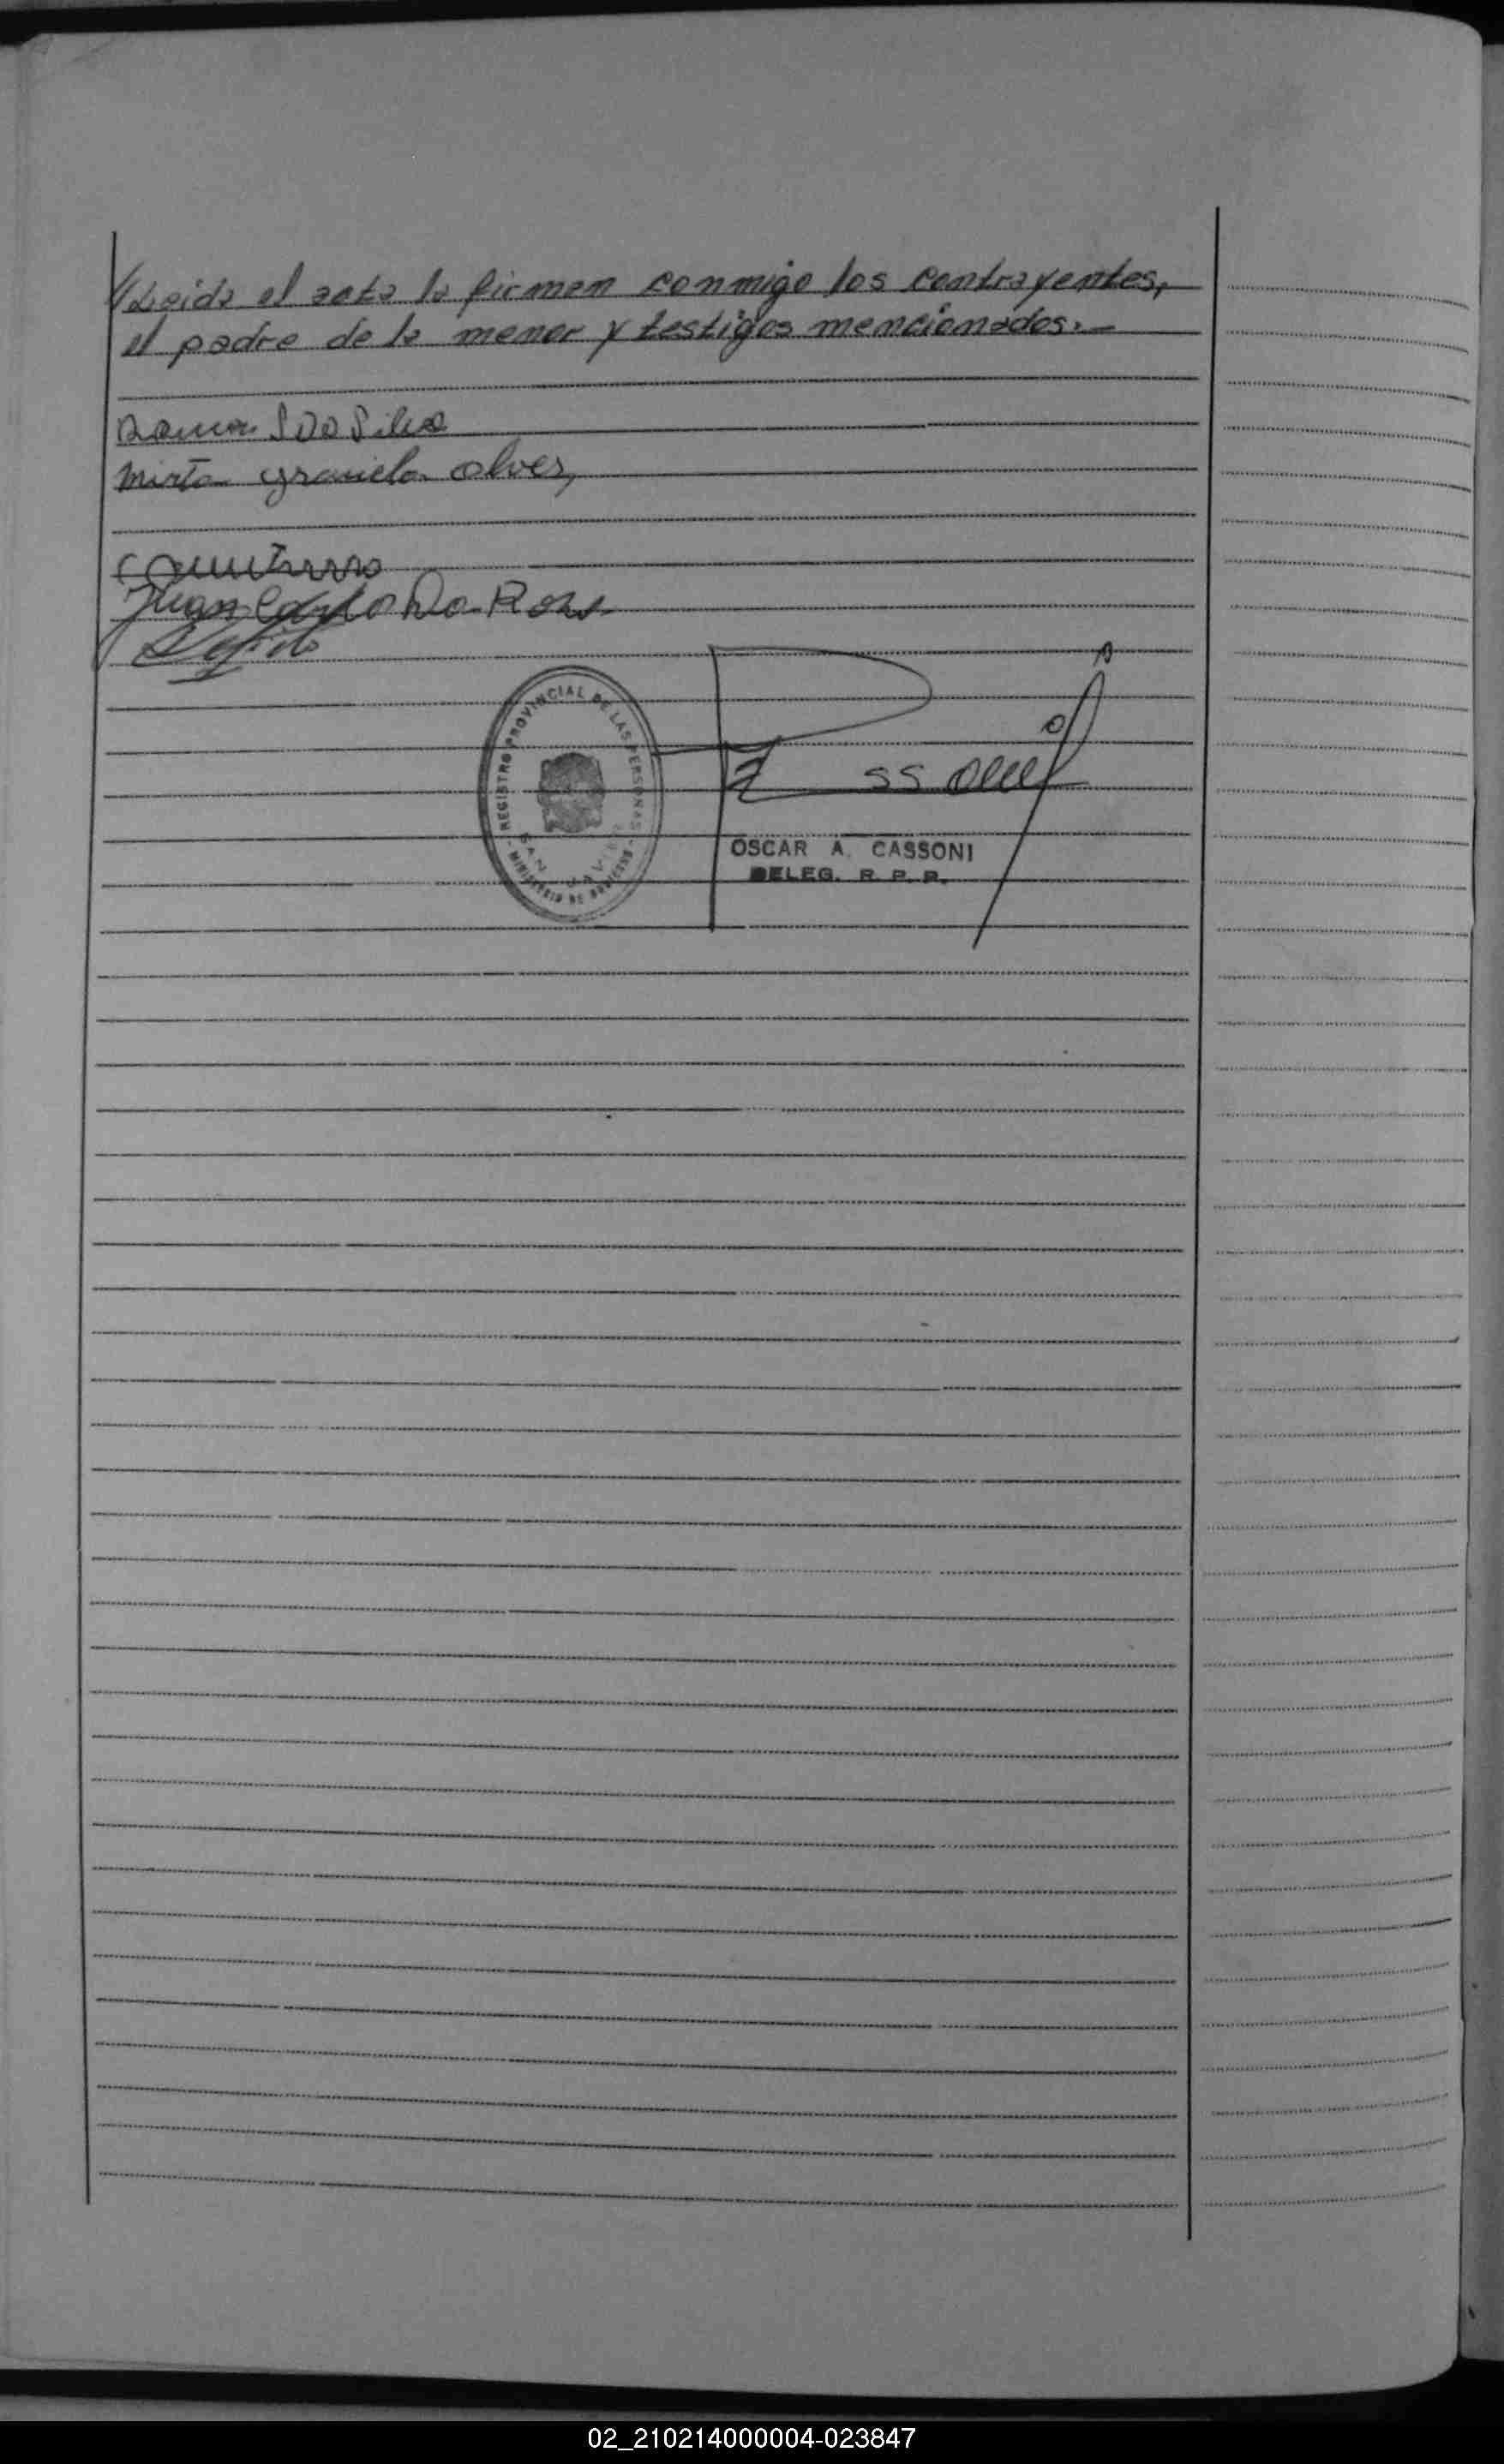 Leida el acta la firman conmigo los contrayentes,
el padre de la menor y testigos mencionados.-
Ramon S Da Silva
Mirta graciela alves,
Juan Carlo Da Rosa
REGISTRO PROVINCIAL DE LAS PERSONAS
SAN JAVIER
- MINISTERIO DE GOBIERNO -
OSCAR A. CASSONI
DELEG. R. P. P.
02_210214000004-023847